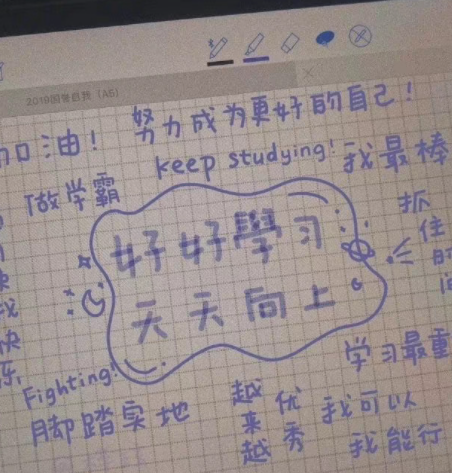 加油！
努力成为更好的自己！
keep studying!
我最棒
做学霸
抓住时间
好好學习
天天向上
学习最重
Fighting!
脚踏实地
越来越优秀
我可以
我能行